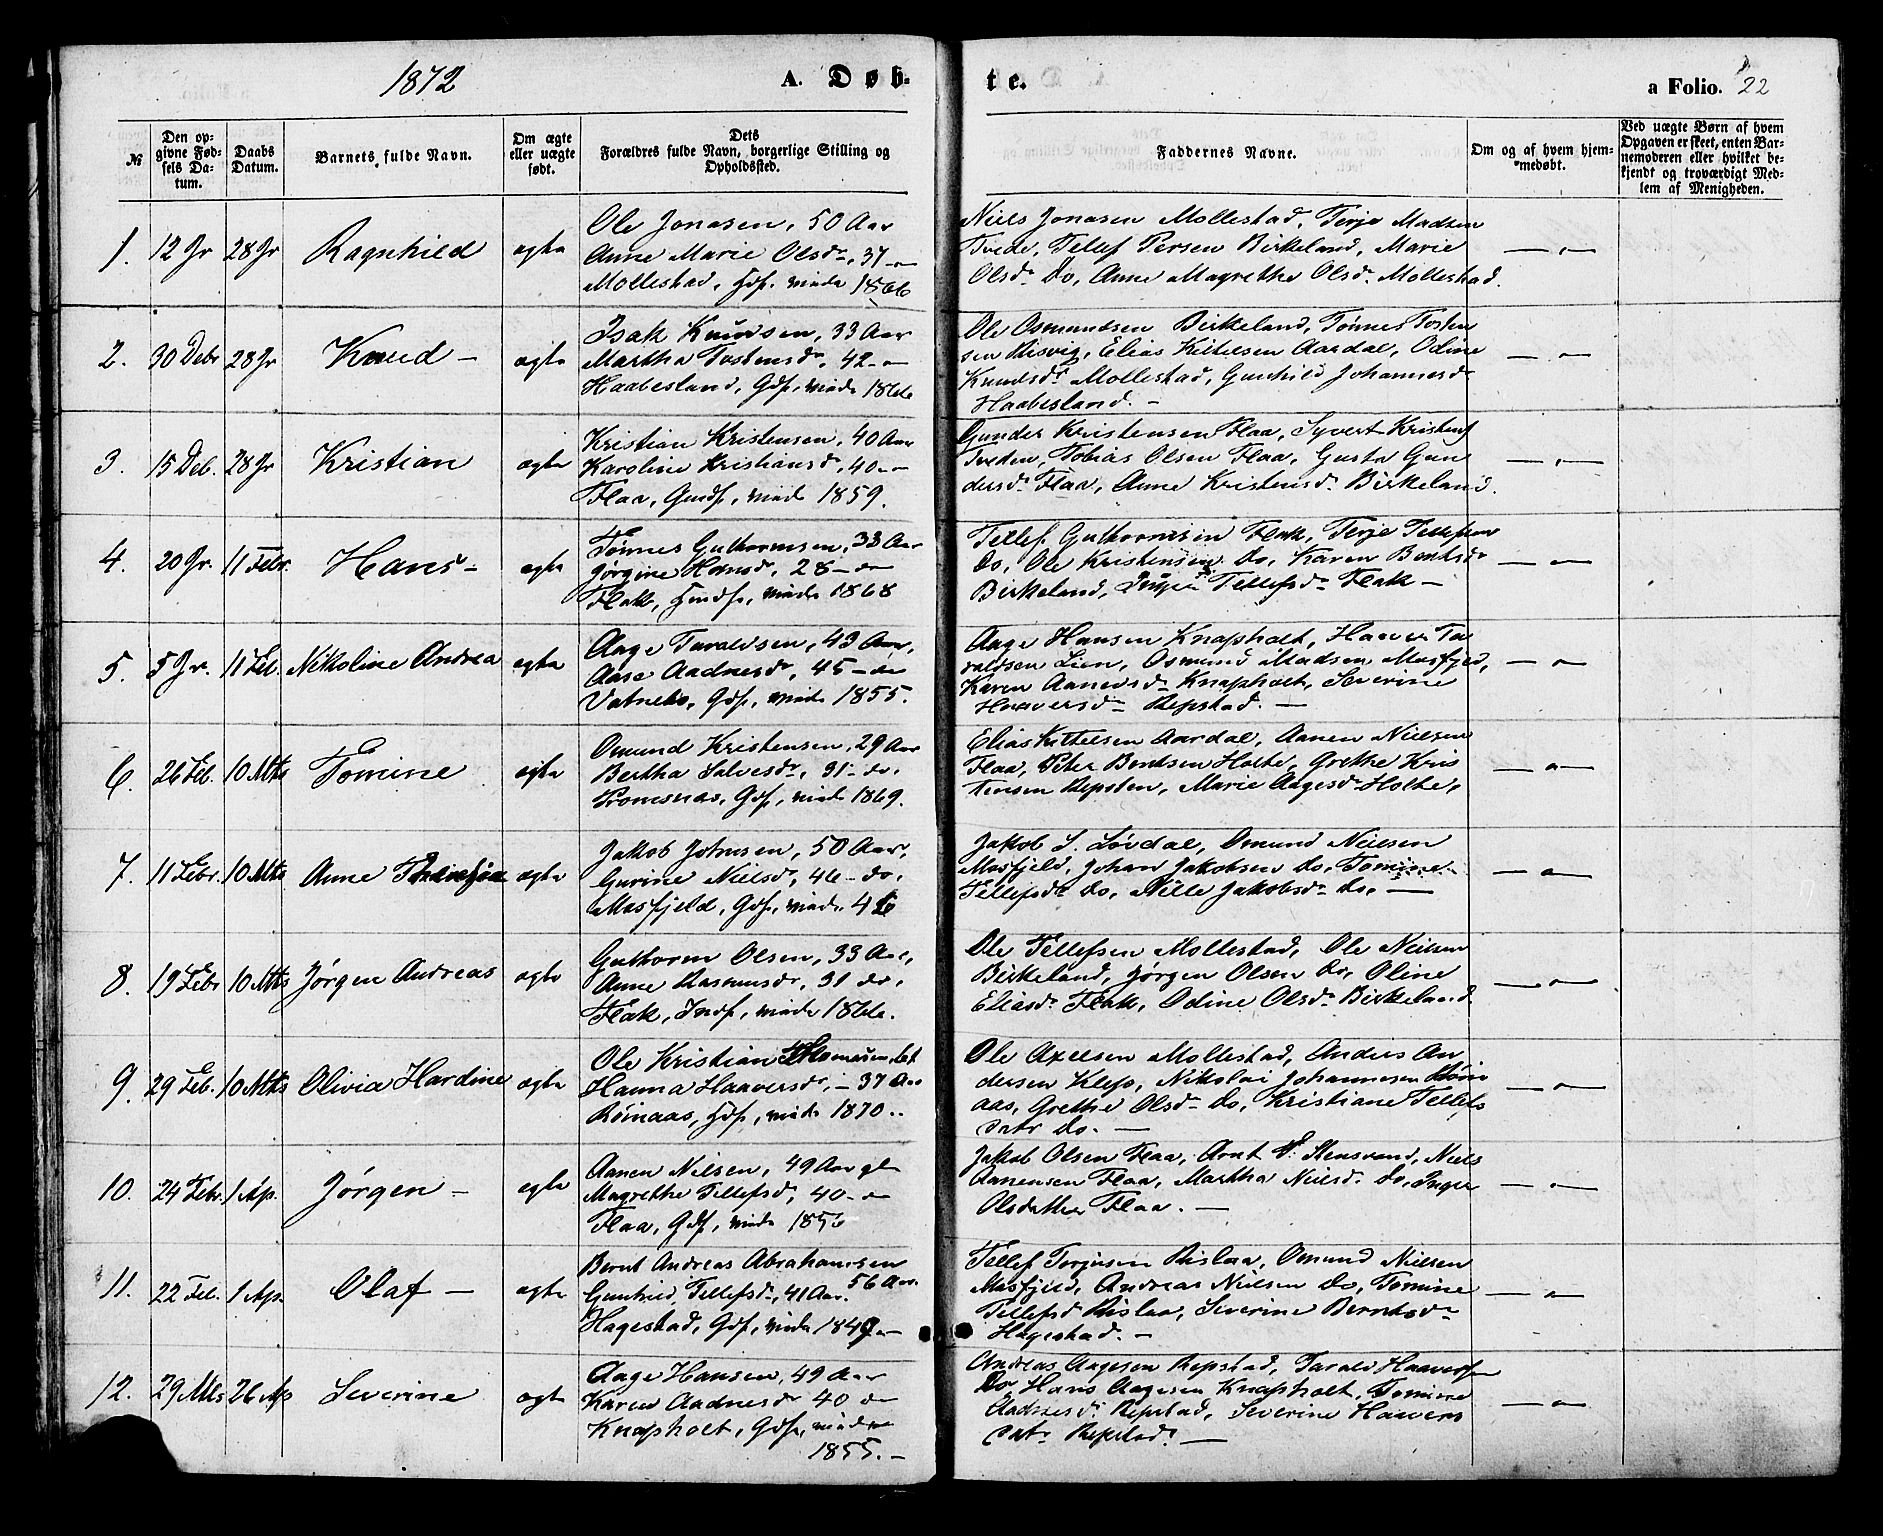 1872 A. Døb-
te. a Folio. 22
№ Den opgivne Fødsels Datum. Daabs Datum. Barnets fulde Navn. Om ægte eller uægte født. Dets Forældres fulde Navn, borgerlige Stilling og Opholdssted. Faddernes Navne. Om og af hvem hjemmedøbt. Ved uægte Børn af hvem Opgaven er skeet, enten Barnemoderen eller hvilket bekjendt og troværdigt Medlem af Menigheden.
1. 12 Jr 28 Jr Ragnhild ægte
Ole Jonasen, 50 Aar
Anne Marie Olsdr, 37 -"-
Mollestad, Gdf, viede 1866
Niels Jonasen Mollestad, Terje Madsen
Tvede, Tellef Persen Birkeland, Marie
Olsdr Do, Anne Magrethe Olsdr Mollestad.
2. 30 Debr 28 Jr Knud - ægte
Isak Knudsen, 33 Aar
Martha Tostensdr, 42 -"-
Haabesland, Gdf, viede 1866
Ole Osmundsen Birkeland, Tønnes Tosten
sen Risvig, Elias Kittelsen Aardal, Odine
Knudsdr Mollestad, Gunhild Johannesdr
Haabesland. -
3. 15 Deb. 28 Jr Kristian ægte
Kristian Kristensen, 40 Aar
Karoline Kristiansdr, 40 -"-
Flaa, Gmdf, viede 1859.
Gunder Kristensen Flaa, Syvert Kristens
Tveden, Tobias Olsen Flaa, Gusta Gun
dersdr Flaa, Anne Kristensdr Birkeland.
4. 20 Jr. 11 Febr. Hans - ægte
Tønnes Guthormsen, 33 Aar
Jørgine Hansdr, 28 - do
Flak, Gmdf, viede 1868
Tellef Guthormsen Flak, Terje Tellefsen
Do, Ole Kristensen Do, Karen Bentsdr
Birkeland, Tellefsdr Flak -
5. 5 Jr. 11 Feb. Nikoline Andrea ægte
Aage Taraldsen, 43 Aar,
Aase Aadnesdr, 45 - do
Vatnebo, Gdf, viede 1855.
Aage Hansen Knapholt, Haaver Ta
raldsen Lien, Osmund Madsen Mosfjeld,
Karen Aanensdr Knapholt, Severine
Haaversdr Repstad. -
6. 26 Feb. 10 Mts Tomine ægte
Omund Kristensen, 29 Aar
Bertha Salvesdr, 31 - do.
Gdf, viede 1869.
Elias Kittelsen Aardal, Aanen Nielsen
Flaa, Peter Bentsen Holte, Grethe Kris
tensen Repsten, Marie Aagesdr Holte,
7. 11 Febr. 10 Mts Anne ægte
Jakob 50 Aar,
Gurine Nielsdr, 46 - do.
Mosfjeld, Gdf, viede 46
Jakob S. Løvdal, Omund Nielsen
Mosfjeld, Johan Jakobsen Do, Tomine
Tellefsdr Do, Nille Jakobsdr Do. -
8. 19 Febr 10 Mts Jørgen Andreas ægte
Guthorm Olsen, 33 Aar,
Anne Rasmusdr, 31 do.
Flak, Indf, viede 1866.
Ole Tellefsen Mollestad, Ole Nielsen
Birkeland, Jørgen Olsen Do, Oline
Eliasdr Flak, Odine Olsdr Birkeland
9. 29 Feb. 10 Mts Olivia Hardine ægte
Ole Kristian
Hanna Haaversdr, - 37 Aar
Røinaas, Gdf, viede 1870..
Ole Axelsen Mollestad, Anders An
dersen Klep, Nikolai Johannesen Røin
aas, Grethe Olsdr Do, Kristiane Tellefs
datr Do. -
10. 24 Febr. 1 Ap. Jørgen - ægte
Aanen Nilsen, 49 Aar gl
Magrethe Tellefsdr, 40 -"-
Flaa, Gdf, viede 1856
Jakob Olsen Flaa, Arnt Stensvand, Niels
Aanensen Flaa, Martha Nielsdr Do, Inger
Olsdatter Flaa. -
11. 22 Feb. 1 Ap. Olaf - ægte
Bernt Andreas Abrahamsen
56 Aar.
Gunhild Tellefsdr, 41 Aar.
Hagestad, Gdf, viede 1849 -
Tellef Torjusen Rislaa, Omund Nielsen
Mosfjeld, Andreas Nielsen Do, Tomine
Tellefsd Rislaa, Severine Berntsdr
Hagestad. -
12. 29 Mts 26 Ap Severine ægte
Aage Hansen, 49 Aar
Karen Aadnesdr 40 do
Knapholt, Gdf, viede
1855. -
Andreas Aagesen Repstad, Tarald Haaversen
Do, Hans Aagesen Knapholt, Tomine
Aadnesdr. Repstad, Severine Haavers
datr Repstad. -